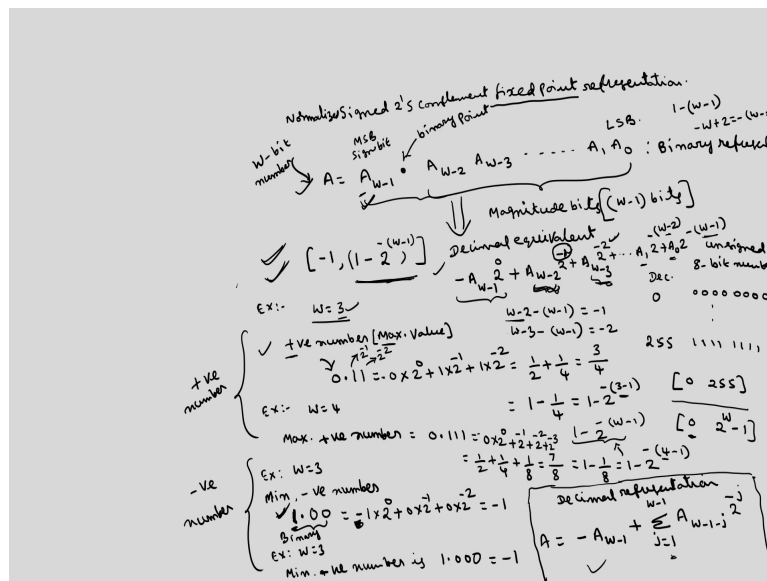 Normalized Signed 2's complement fixed point representation.
W-bit number
MSB
Sign bit
binary point
LSB.
1-(W-1)
-W+2=-(W-
A = A_{W-1} • A_{W-2} A_{W-3} ------ A_1 A_0 : Binary represent
Magnitude bits [(W-1) bits]
[-1, (1-2^{-(W-1)})]
Decimal equivalent
-A_{W-1} 2^0 + A_{W-2} 2^{-1} + A_{W-3} 2^{-2} + ... A_1 2^{-(W-2)} + A_0 2^{-(W-1)}
unsigned
8-bit numbe
Dec.
0 00000000
:
255 1111 1111,
[0 255]
[0 2^W-1]
Ex:- W=3
W-2-(W-1) = -1
W-3-(W-1) = -2
+ve number
+ve number [Max. Value]
2^{-1} 2^{-2}
0.11 = 0x2^0+1x2^{-1}+1x2^{-2} = 1/2 + 1/4 = 3/4
= 1 - 1/4 = 1-2^{-(3-1)}
Ex:- W=4
1-2^{-(W-1)}
Max. +ve number = 0.111 = 0x2^0+2^{-1}+2^{-2}+2^{-3}
= 1/2 + 1/4 + 1/8 = 7/8 = 1 - 1/8 = 1-2^{-(4-1)}
-ve number
Ex: W=3
Min. -ve number
1.00 = -1x2^0+0x2^{-1}+0x2^{-2} = -1
Binary
Ex: W=3
Min. +ve number is 1.000 = -1
Decimal representation
A = -A_{W-1} + Σ_{j=1}^{W-1} A_{W-1-j} 2^{-j}